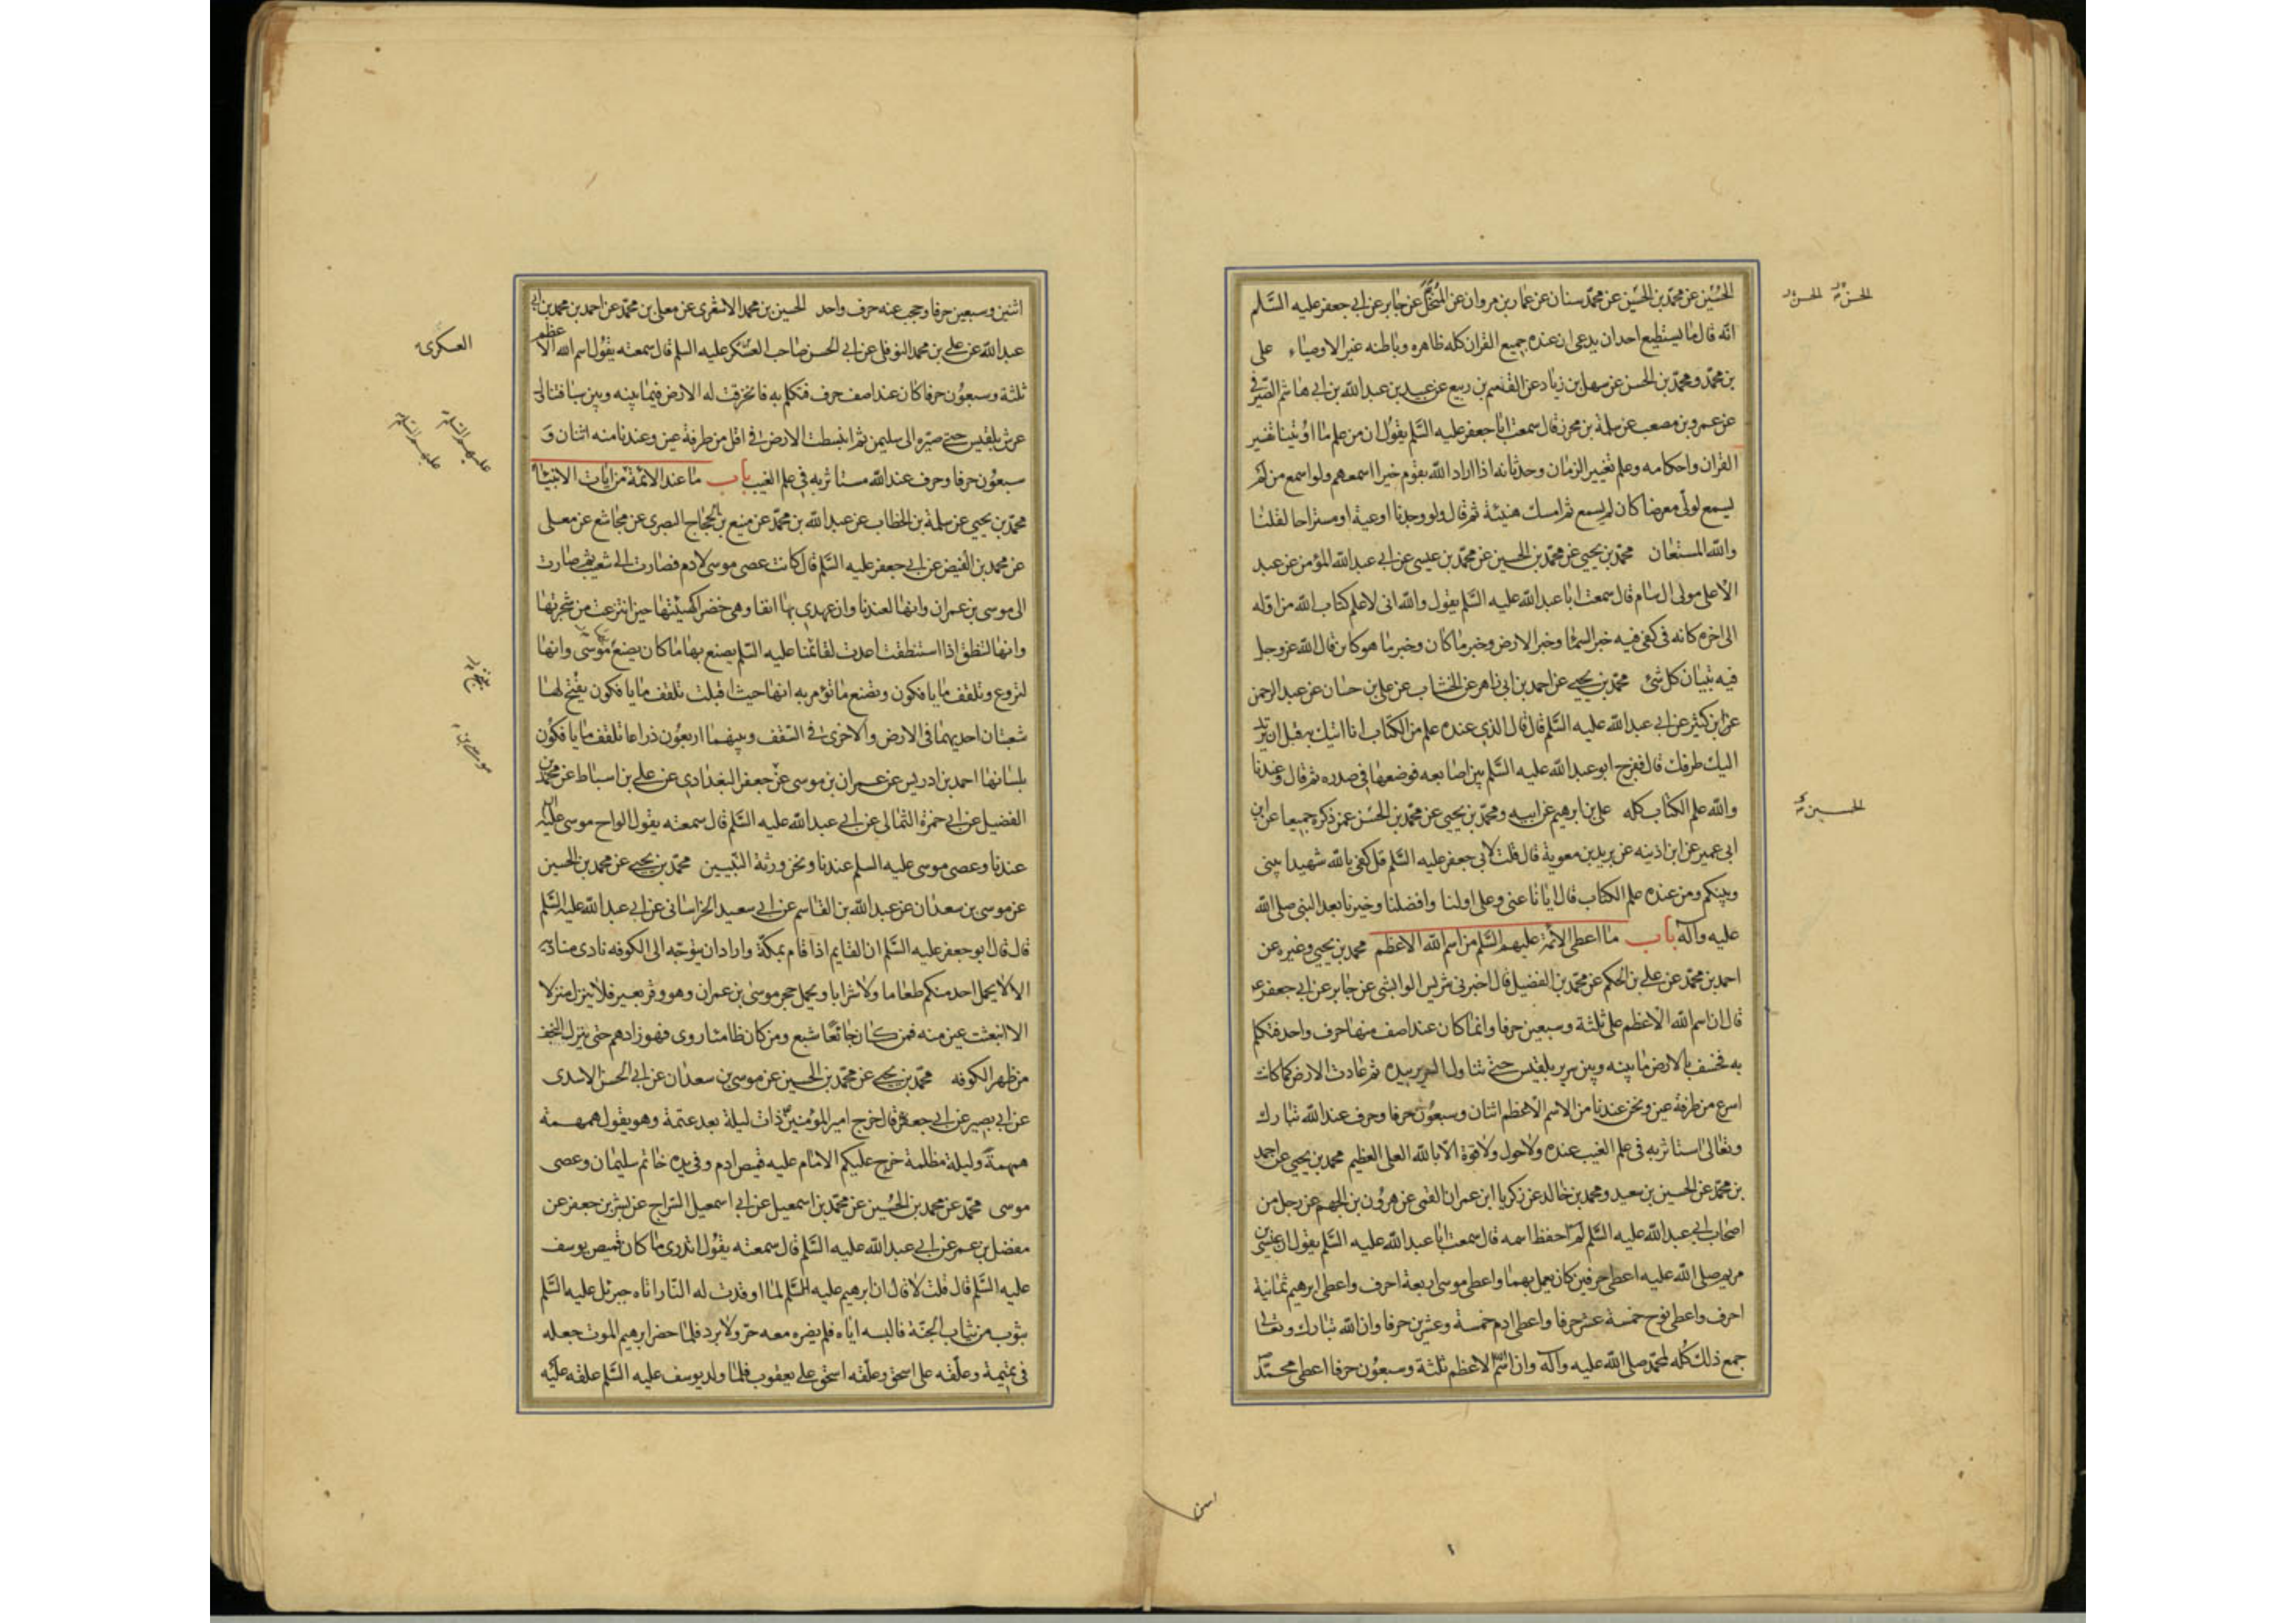 الحسين عن محمد بن الحسين عن محمد سنان عن عمار بن مروان عن المنخل عن جابر عن ابى جعفر عليه السلم
انه قال ما يستطيع احد ان يدعى ان عنده جميع القران كله ظاهره وباطنه غير الاوصياء على
بن محمد ومحمد بن الحسن عن سهل بن زياد عن القسم بن ربيع عن عبيد بن عبد الله بن ابى هاشم الصيرفى
عن عمرو بن مصعب عن سلمة بن محرز قال سمعت ابا جعفر عليه السلم يقول ان من علم ما اوتينا تفسير
القران واحكامه وعلم تغيير الزمان وحدثانه اذا اراد الله بقوم خيرا اسمعهم ولو اسمع من لم
يسمع لولى معرضا كان لم يسمع ثم امسك هنيئة ثم قال ولو وجدنا اوعية او مستراحا لقلنا
والله المستعان محمد بن يحيى عن محمد بن الحسين عن محمد بن عيسى عن ابى عبد الله المؤمن عن عبد
الاعلى مولى ال سام قال سمعت ابا عبد الله عليه السلم يقول والله انى لاعلم كتاب الله من اوله
الى اخره كانه فى كفى فيه خبر السما وخبر الارض وخبر ما كان وخبر ما هو كاين قال الله عز وجل
فيه تبيان كل شئ محمد بن يحيى عن احمد بن ابى زاهر عن الخشاب عن على بن حسان عن عبد الرحمن
عن ابن كثير عن ابى عبد الله عليه السلم قال قال الذى عنده علم من الكتاب انا اتيك به قبل ان يرتد
اليك طرفك قال ففرج ابو عبد الله عليه السلم بين اصابعه فوضعها فى صدره ثم قال وعندنا
والله علم الكتاب كله على بن ابرهيم عن ابيه ومحمد بن يحيى عن محمد بن الحسن عمن ذكره جميعا عن ابن
ابى عمير عن ابن اذينه عن بريد بن معوية قال قلت لابى جعفر عليه السلم قل كفى بالله شهيدا بينى
وبينكم ومن عنده علم الكتاب قال ايانا عنى وعلى اولنا وافضلنا وخيرنا بعد النبى صلى الله
عليه وآله باب ما اعطى الائمة عليهم السلم من اسم الله الاعظم محمد بن يحيى وغيره عن
احمد بن محمد عن على بن الحكم عن محمد بن الفضيل قال اخبرنى شريس الوابشى عن جابر عن ابى جعفر ع
قال ان اسم الله الاعظم على ثلثة وسبعين حرفا وانما كان عند اصف منها حرف واحد فتكلم
به فخسف بالارض ما بينه وبين سرير بلقيس حتى تناول السرير بيده ثم عادت الارض كما كانت
اسرع من طرفة عين ونحن عندنا من الاسم الاعظم اثنان وسبعون حرفا وحرف عند الله تبارك
وتعالى استاثر به فى علم الغيب عنده ولا حول ولا قوة الا بالله العلى العظيم محمد بن يحيى عن احمد
بن محمد عن الحسين بن سعيد ومحمد بن خالد عن زكريا ابن عمران القمى عن هرون بن الجهم عن رجل من
اصحاب ابى عبد الله عليه السلم لم احفظ اسمه قال سمعت ابا عبد الله عليه السلم يقول ان عيسى بن
مريم صلى الله عليه اعطى حرفين كان يعمل بهما واعطى موسى اربعة احرف واعطى ابرهيم ثمانية
احرف واعطى نوح خمسة عشر حرفا واعطى ادم خمسة وعشرين حرفا وان الله تبارك وتعالى
جمع ذلك كله لمحمد صلى الله عليه وآله وان اسم الاعظم ثلثة وسبعون حرفا اعطى محمد
الحسن الحسن
الحسين
اثنين وسبعين حرفا وحجب عنه حرف واحد الحسين بن محمد الاشعرى عن معلى بن محمد عن احمد بن محمد بن ابى
عبد الله عن على بن محمد النوفلى عن ابى الحسن صاحب العسكر عليه السلم قال سمعته يقول اسم الله الاعظم
ثلثة وسبعون حرفا كان عند اصف حرف فتكلم به فانخرقت له الارض فيما بينه وبين سبا فتنا ل
عرش بلقيس حتى صيره الى سليمن ثم انبسطت الارض فى اقل من طرفة عين وعندنا منه اثنان و
سبعون حرفا وحرف عند الله مستاثر به فى علم الغيب باب ما عند الائمة من ايات الانبياء
محمد بن يحيى عن سلمة بن الخطاب عن عبد الله بن محمد عن منيع بن الحجاج البصرى عن مجاشع عن معلى
عن محمد بن الفيض عن ابى جعفر عليه السلم قال كانت عصى موسى لادم فصارت الى شعيب ثم صارت
الى موسى بن عمران وانها لعندنا وان عهدى بها انفا وهى خضر كهيئتها حين انتزعت من شجرتها
وانها لتنطق اذا استنطقت اعدت لقائمنا عليه السلم يصنع بها ما كان يصنع موسى وانها
لتروع وتلقف ما يافكون وتصنع ما تؤمر به انها حيث اقبلت تلقف ما يافكون يفتح لها
شعبتان احديهما فى الارض والاخرى فى السقف وبينهما اربعون ذراعا تلقف ما يافكون
بلسانها احمد بن ادريس عن عمران بن موسى عن جعفر البغدادى عن على بن اسباط عن محمد بن
الفضيل عن ابى حمزة الثمالى عن ابى عبد الله عليه السلم قال سمعته يقول الواح موسى عليه السلم
عندنا وعصى موسى عليه السلم عندنا ونحن ورثة النبيين محمد بن يحيى عن محمد بن الحسين
عن موسى بن سعدان عن عبد الله بن القاسم عن ابى سعيد الخراسانى عن ابى عبد الله عليه السلم
قال قال ابو جعفر عليه السلم ان القايم اذا قام بمكة واراد ان يتوجه الى الكوفه نادى مناديه
الا لا يحمل احد منكم طعاما ولا شرابا ويحمل حجر موسى بن عمران وهو وقر بعير فلا ينزل منزلا
الا انبعثت عين منه فمن كان جائعا شبع ومن كان ظامئا روى فهو زادهم حتى ينزل النجف
من ظهر الكوفه محمد بن يحيى عن محمد بن الحسين عن موسى بن سعدان عن ابى الحسن الاسدى
عن ابى بصير عن ابى جعفر قال خرج امير المؤمنين ذات ليلة بعد عتمة وهو يقول همهمة
همهمة وليلة مظلمة خرج عليكم الامام عليه قميص ادم وفى يده خاتم سليمان وعصى
موسى محمد عن محمد بن الحسين عن محمد بن اسمعيل عن ابى اسمعيل السراج عن بشر بن جعفر عن
مفضل بن عمر عن ابى عبد الله عليه السلم قال سمعته يقول اتدرى ما كان قميص يوسف
عليه السلم قال قلت لا قال ان ابرهيم عليه السلم لما اوقدت له النار اتاه جبرئل عليه السلم
بثوب من ثياب الجنة فالبسه اياه فلم يضره معه حر ولا برد فلما حضر ابرهيم الموت جعله
فى تميمة وعلقه على اسحق وعلقه اسحق على يعقوب فلما ولد يوسف عليه السلم علقه عليه
العسكرى
عليهم السلم عليهم السلم
موسى بن